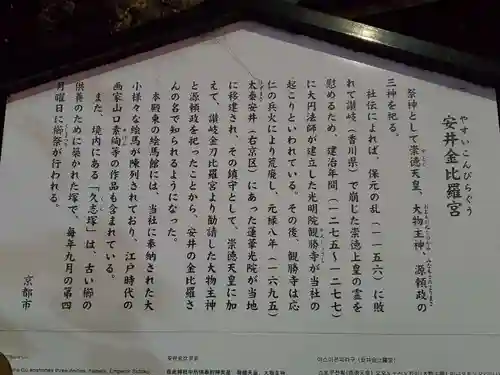 やすいこんぴらぐう
安井金比羅宮
祭神として崇徳天皇、大物主神、源頼政の
三神を祀る。
社伝によれば、保元の乱(一一五六)に敗
れて讃岐(香川県)で崩じた崇徳上皇の霊を
慰めるため、建治年間(一二七五〜一二七七)
に大円法師が建立した光明院観勝寺が当社の
起こりといわれている。その後、観勝寺は応
仁の兵火により荒廃し、元禄八年(一六九五)
太秦安井(右京区)にあった蓮華光院が当地
に移建され、その鎮守として、崇徳天皇に加
えて、讃岐金刀比羅宮より勧請した大物主神
と源頼政を祀ったことから、安井の金比羅さ
んの名で知られるようになった。
本殿東の絵馬館には、当社に奉納された大
小様々な絵馬が陳列されており、江戸時代の
画家山口素絢等の作品も含まれている。
また、境内にある「久志塚」は、古い櫛の
供養のために築かれた塚で、毎年九月の第四
月曜日に櫛祭が行われる。
京都市